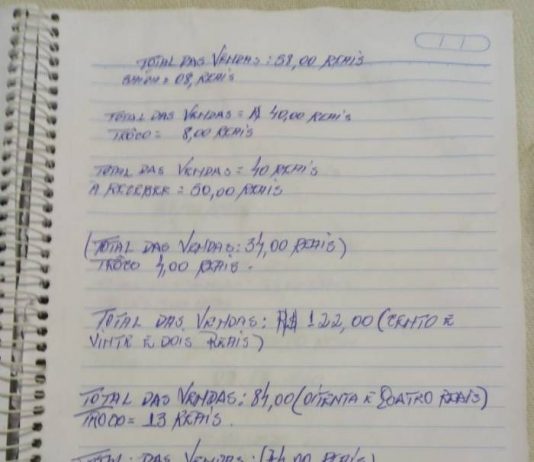 TOTAL DAS VENDAS: 58,00 REAIS
= 08, REAIS
TOTAL DAS VENDAS = R$ 40,00 REAIS
TROCO = 8,00 REAIS
TOTAL DAS VENDAS = 40 REAIS
A RECEBER = 50,00 REAIS
(TOTAL DAS VENDAS: 34,00 REAIS)
TROCO 4,00 REAIS.
TOTAL DAS VENDAS: R$ 122,00 (CENTO E
VINTE E DOIS REAIS)
TOTAL DAS VENDAS: 84,00 (OITENTA E QUATRO REAIS)
TROCO = 13 REAIS.
TOTAL DAS VENDAS: (74,00 REAIS)